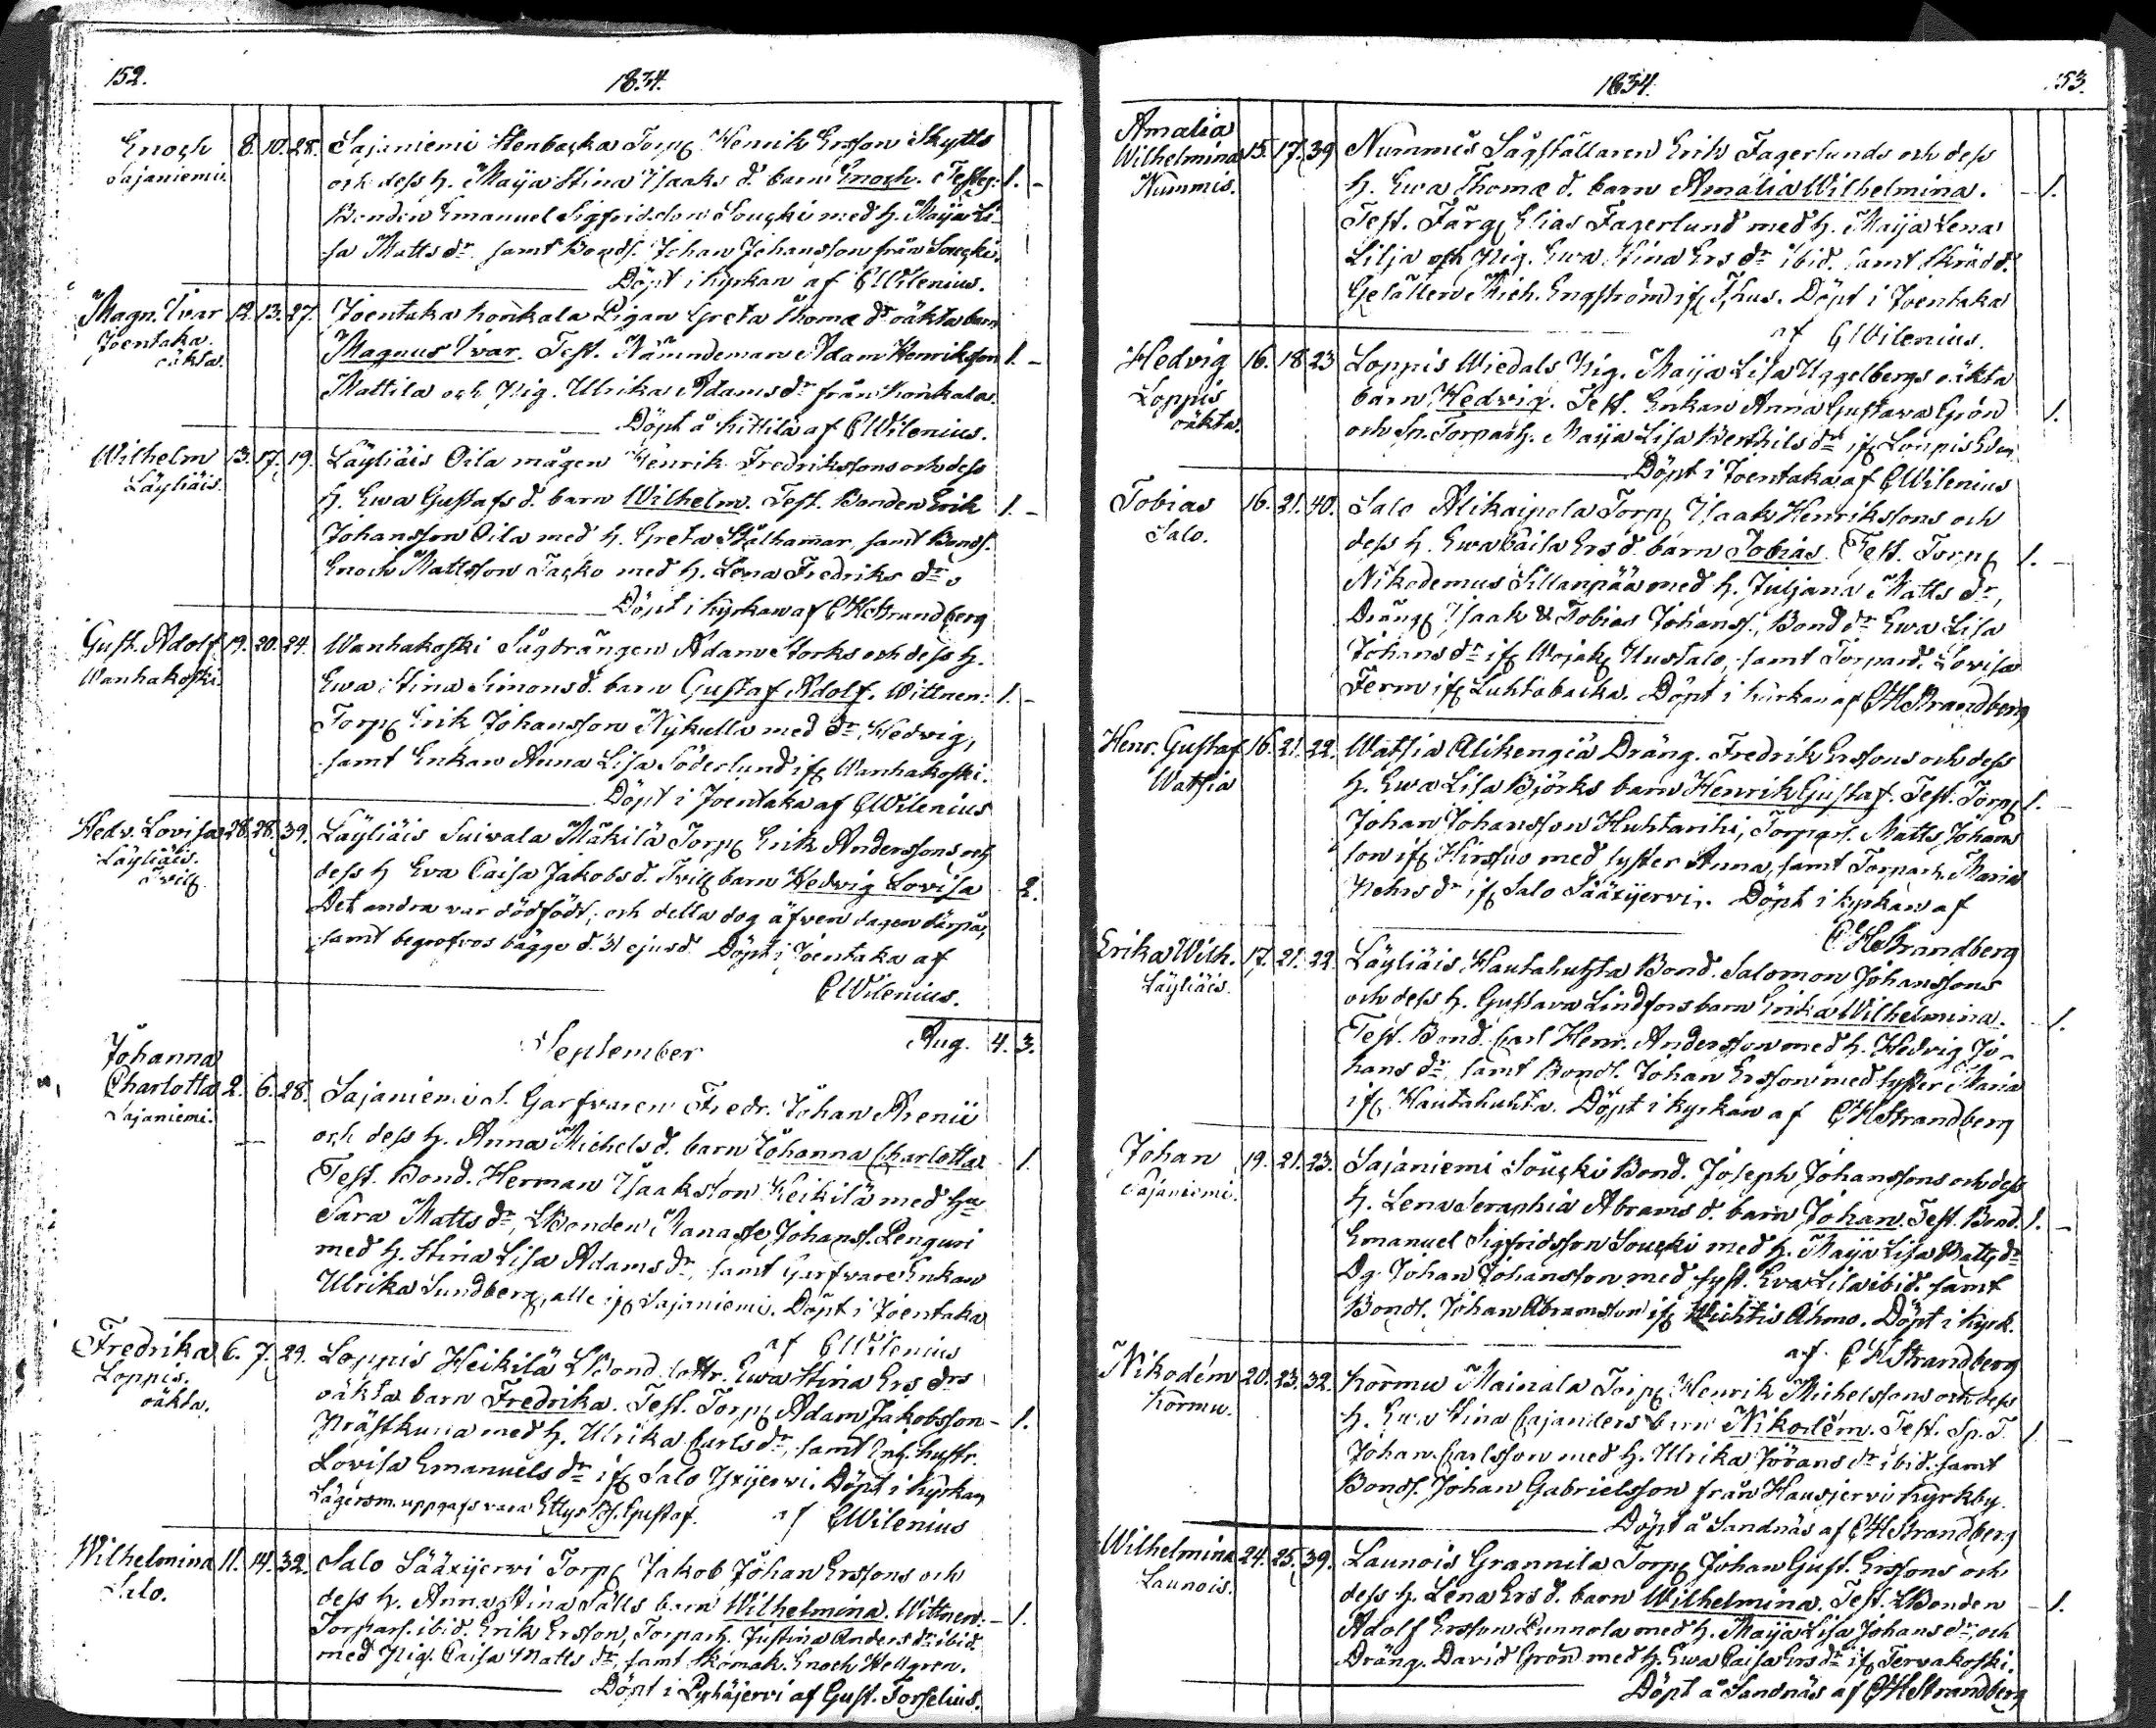 152.
1834.
Enoch 8. 10. 28. Sajaniemi Stenbacka Torp. Henrik Ersson Skytts
Sajaniemi. och dess h. Maija Stina Isaks d. barn Enoch. Test. 1. -
Bonden Emanuel Sigfridsson Soucki med h. Maija Li-
sa Matts dr samt Bonds. Johan Johansson från Soucki.
Döpt i kyrkan af CWilenius.
Magn. Ivar 12. 13. 27. Joentaka honkala Pigan Greta Thomæ dr oäkta barn
Joentaka. Magnus Ivar. Test. Nämndeman Adam Henriksson 1. -
oäkta. Mattila och Pig. Ulrika Adams dr från honkala.
Döpt å Kittilä af CWilenius.
Wilhelm 13. 17. 19. Läyliäis Oila mågen Henrik Fredrikssons och dess
Läyliäis. h. Ewa Gustafs d. barn Wilhelm. Test. Bonden Erik 1. -
Johansson Oila med h. Greta Stålhamar, samt Bonds.
Enoch Mattsson Jacko med h. Lena Fredriks dr
Döpt i kyrkan af CHStrandberg
Gust. Adolf 19. 20. 24. Wanhakoski Sågdrängen Adam Storks och dess h.
Wanhakoski. Ewa Stina Simons d. barn Gustaf Adolf. Wittnen: 1. -
Torp. Erik Johansson Nykulla med dr Hedvig,
samt Enkan Anna Lisa Söderlund if. Wanhakoski.
Döpt i Joentaka af CWilenius
Hedv. Lovisa 28. 28. 39. Läyliäis Suivala Mäkilä Torp. Erik Anderssons och
Läyliäis. dess h Eva Caisa Jakobs d. Tvill. barn Hedvig Lovisa 2.
Tvill. Det andra var dödfödt, och detta dog äfven dagen därpå,
samt begrofvos bägge d. 31 ejusd. Döpt i Joentaka af
CWilenius.
September Aug. 4. 3.
Johanna
Charlotta 2. 6. 28. Sajaniemi S. Garfvaren Fredr. Johan Arenii
Sajaniemi. och dess h. Anna Michels d. barn Johanna Charlotta 1.
Test. Bond. Herman Isaksson Heikilä med hu
Sara Matts dr, LBonden Manasse Johanss. Penguri
med h. Stina Lisa Adams dr, samt Garfvare Enkan
Ulrika Sundberg, alle if. Sajaniemi. Döpt i Joentaka
af CWilenius
Fredrika 6. 7. 29. Loppis Heikilä LBond. dottr. Ewa Stina Ers drs
Loppis. oäkta barn Fredrika. Test. Torp. Adam Jakobsson - 1.
oäkta. Prästkuna med h. Ulrika Carls dr, samt Inh. hustr.
Lovisa Emanuels dr if. Salo Yxijervi. Döpt i kyrkan
Lägersm. uppgafs vara Gustaf. af CWilenius
Wilhelmina 11. 14. 32. Salo Sääxijervi Torp. Jakob Johan Erssons och
Salo. dess h. Anna Stina Sälls barn Wilhelmina. Wittnen: - 1.
Torpars. ibid. Erik Ersson, Torparh. Justina Anders dr ibid.
med Pig. Caisa Matts dr, samt Skomak. Enoch Hellgren.
Döpt i Pyhäjervi af Gust. Forselius.
1834.
153.
Amalia
Wilhelmina 15. 17. 39 Nummis Sågställaren Erik Fagerlunds och dess
Nummis. h. Ewa Thomæ d. barn Amalia Wilhelmina. - 1.
Test. Färg. Elias Fagerlund med h. Maija Lena
Lilja och Pig. Ewa Stina Ers dr ibid. samt Skrädd.
Gesällen Mich. Engström if. T.hus. Döpt i Joentaka
af CWilenius.
Hedvig 16. 18. 23 Loppis Wiedals Pig. Maija Lisa Uggelbergs oäkta
Loppis barn Hedvig. Test. Enkan Anna Gustava Grön 1.
oäkta. och Sp. Torparh. Maija Lisa Berthils dr if. Loppis
Döpt i Joentaka af CWilenius
Tobias 16. 21. 40. Salo Alikaipola Torp. Isaak Henrikssons och
Salo. dess h. Ewa Caisa Ers d. barn Tobias. Test. Torp. 1. -
Nikodemus Sillanpää med h. Juljana Matts dr,
Dräng. Isaak & Tobias Johanss., Bond dr Ewa Lisa
Johans dr if. Wojak. Uustalo, samt Torpard. Lovisa
Ferm if. Luhtabacka. Döpt i kyrkan af CHStrandberg
Henr. Gustaf 16. 21. 22. Watsia Alikengiä Dräng. Fredrik Erssons och dess
Watsia h. Ewa Lisa Björks barn Henrik Gustaf. Test. Torp. 1. -
Johan Johansson Huhtarihi, Torpars. Matts Johans
son if. Hirssuo med syster Anna, samt Torparh. Maria
Pehrs dr if. Salo Sääxijervi. Döpt i kyrkan af
CHStrandberg
Erika Wilh. 17. 21. 22. Läyliäis Hautahuhta Bond. Salomon Johanssons
Läyliäis. och dess h. Gustava Lindfors barn Erika Wilhelmina. - 1.
Test. Bond. Carl Henr. Andersson med h. Hedvig Jo-
hans dr, samt Bonds. Johan Ersson med syster Maria
if. Hautahuhta. Döpt i kyrkan af CHStrandberg
Johan 19. 21. 23. Sajaniemi Soucki Bond. Joseph Johanssons och dess
Sajaniemi. h. Lena Seraphia Abrams d. barn Johan. Test. Bond. 1. -
Emanuel Sigfridsson Soucki med h. Maija Lisa Matts dr
Dg. Johan Johansson med syst. Eva Lisa ibid. samt
Bonds. Johan Abramsson if. Wichtis Ahmo. Döpt i kyrk.
af CHStrandberg
Nikodém 20. 23. 32. Kormu Mainala Torp. Henrik Michelssons och dess
Kormu. h. Ewa Stina Cajanders barn Nikodém. Test. Sp. T. 1. -
Johan Carlsson med h. Ulrika Jörans dr ibid. samt
Bonds. Johan Gabrielsson från Hausjervi kyrkby.
Döpt å Sandnäs af CHStrandberg
Wilhelmina 24. 25. 39. Launois Grannila Torp. Johan Gust. Erssons och
Launois. dess h. Lena Ers d. barn Wilhelmina. Test. LBonden - 1.
Adolf Ersson Punnola med h. Maija Lisa Johans dr, och
Dräng. David Grön med h. Ewa Caisa Ers dr if. Tervakoski.
Döpt å Sandnäs af CHStrandberg